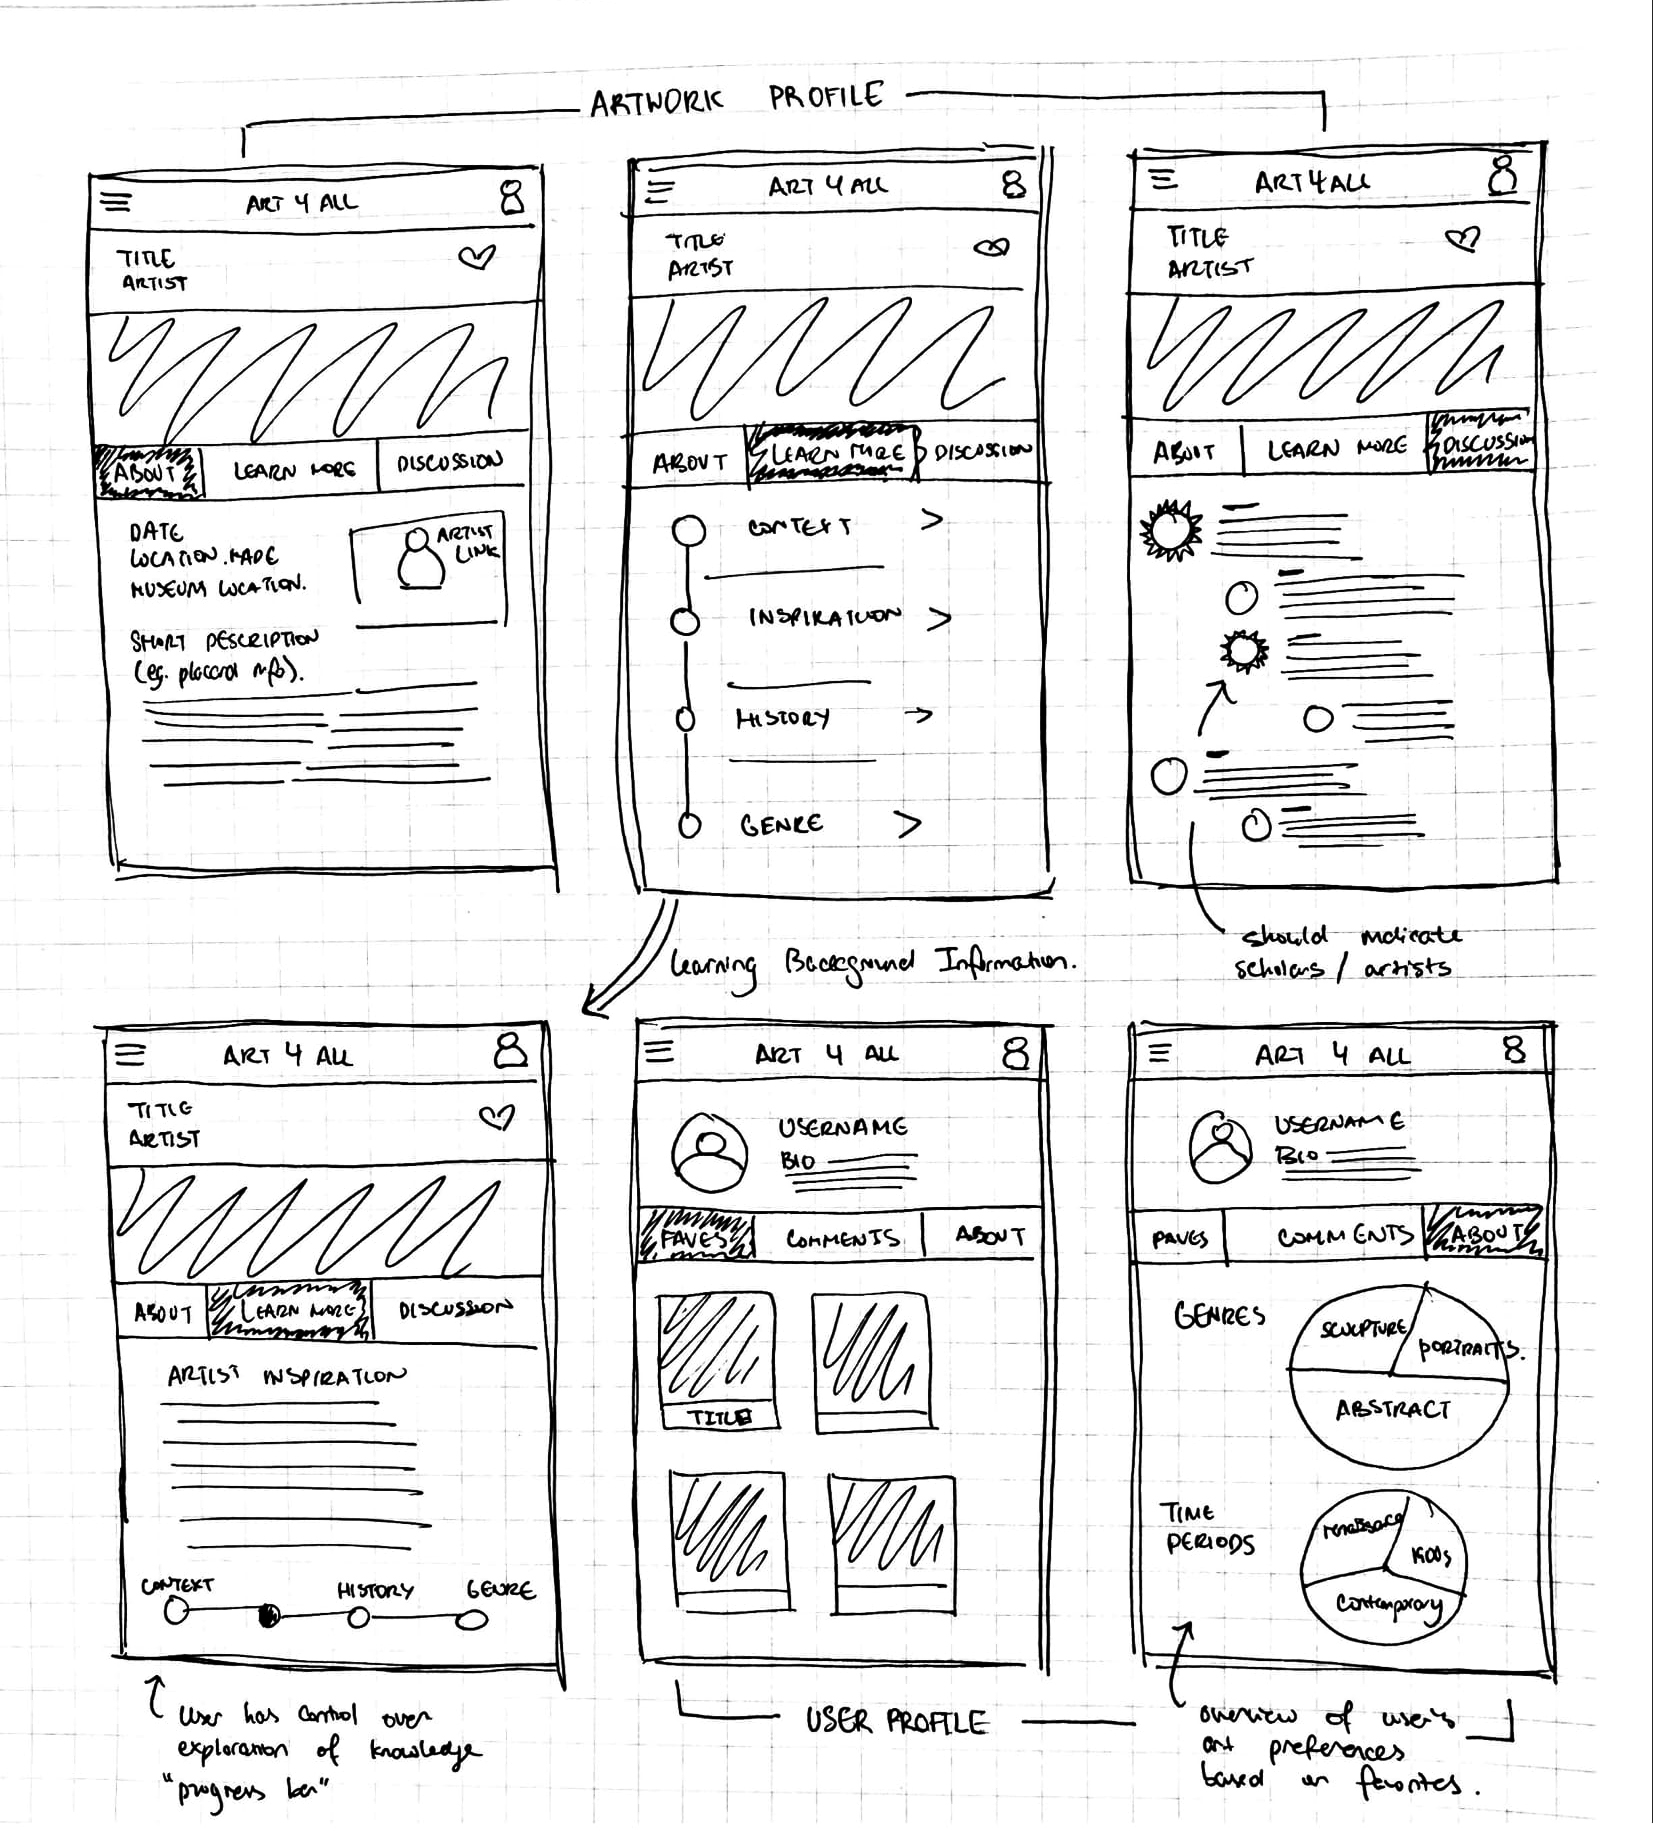 ARTWORK PROFILE
ART 4 ALL
TITLE
ARTIST
ABOUT
LEARN MORE
DISCUSSION
DATE
LOCATION MADE
MUSEUM LOCATION.
ARTIST
LINK
SHORT DESCRIPTION
(eg. placard info).
ART 4 ALL
TITLE
ARTIST
ABOUT
LEARN MORE
DISCUSSION
CONTEXT >
INSPIRATION >
HISTORY
GENRE >
ART 4 ALL
TITLE
ARTIST
ABOUT
LEARN MORE
DISCUSSION
should indicate
scholars / artists
Learning Background Information.
ART 4 ALL
TITLE
ARTIST
ABOUT
LEARN MORE
DISCUSSION
ARTIST INSPIRATION
CONTEXT
HISTORY
GENRE
user has control over
exploration of knowledge
"progress bar"
ART 4 ALL
USERNAME
BIO
FAVES
COMMENTS
ABOUT
TITLE
USER PROFILE
ART 4 ALL
USERNAME
BIO
FAVES
COMMENTS
ABOUT
GENRES
SCULPTURE
PORTRAITS.
ABSTRACT
TIME
PERIODS
renaissace
1900s
Contemporary
overview of user's
art preferences
based on favorites.